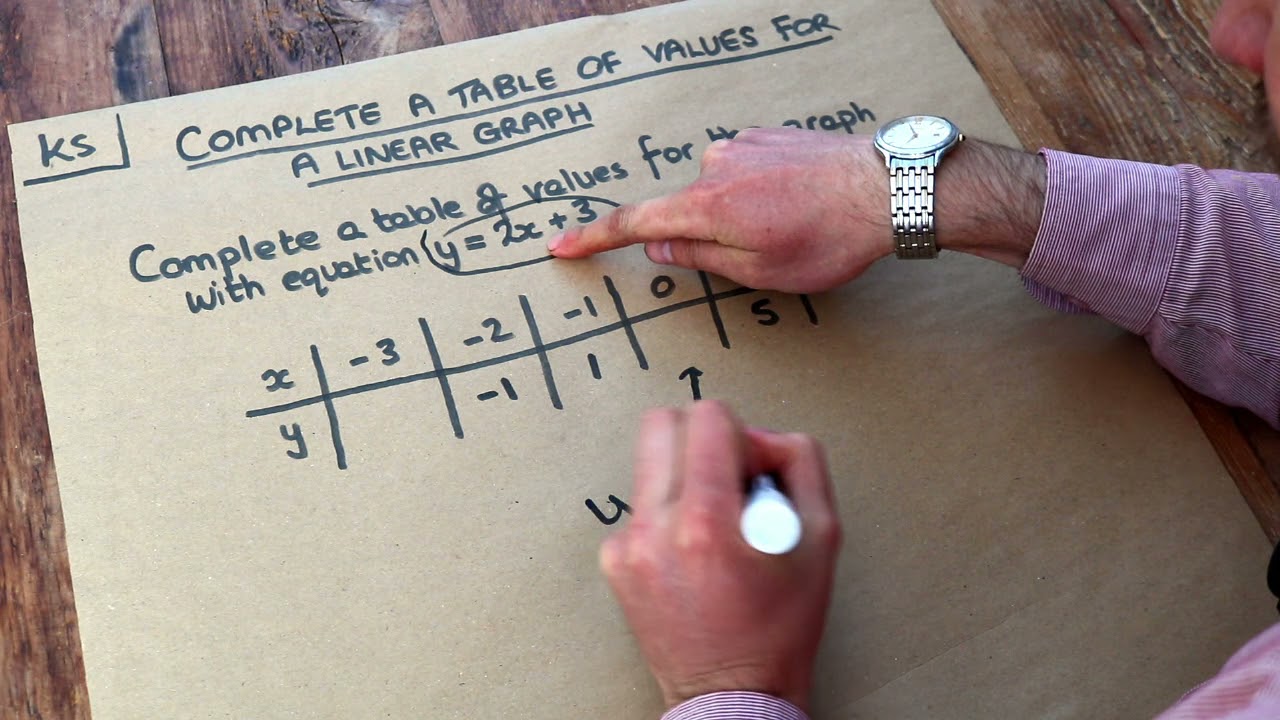 KS
COMPLETE A TABLE OF VALUES FOR
A LINEAR GRAPH
Complete a table of values for the graph
with equation y = 2x + 3
x -3 -2 -1 0
y -1 1 5